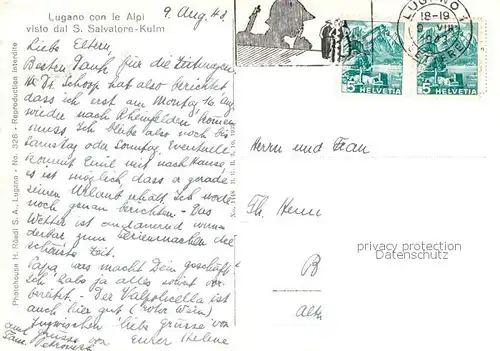 Lugano con le Alpi
visto dal S. Salvatore-Kulm
9. Aug. 43
Liebe Eltern,
Besten Dank für die Zeitungen.
Hr. Dr. Schoop hat also berichtet
dass ich erst am Montag 16. Aug
wieder nach Rheinfelden kommen
muss. Ich bleibe also noch bis
Samstag oder Sonntag. Eventuell
kommt Emil mit nach Hause,
es ist möglich, dass er gerade
seinen Urlaub erhält. Ich werde
noch genau berichten. - Das
Wetter ist andauernd wun-
derbar, zum Ferienmachen die
schönste Zeit.
Papa was macht Dein Geschäft
ich habe ja alles schön vor-
bereitet. - Der Valpolicella ist
auch hier gut (roter Wein)
Inzwischen liebe Grüsse von
Eurer Helene
auch Grüsse von
Fam.
Photohouse H. Rüedi S. A., Lugano - No. 328 - Reproduction interdite
LUGANO 1
18-19
HELVETIA
5
HELVETIA
5
Herrn und Frau
Th. Henn
B
Alts
privacy protection
Datenschutz